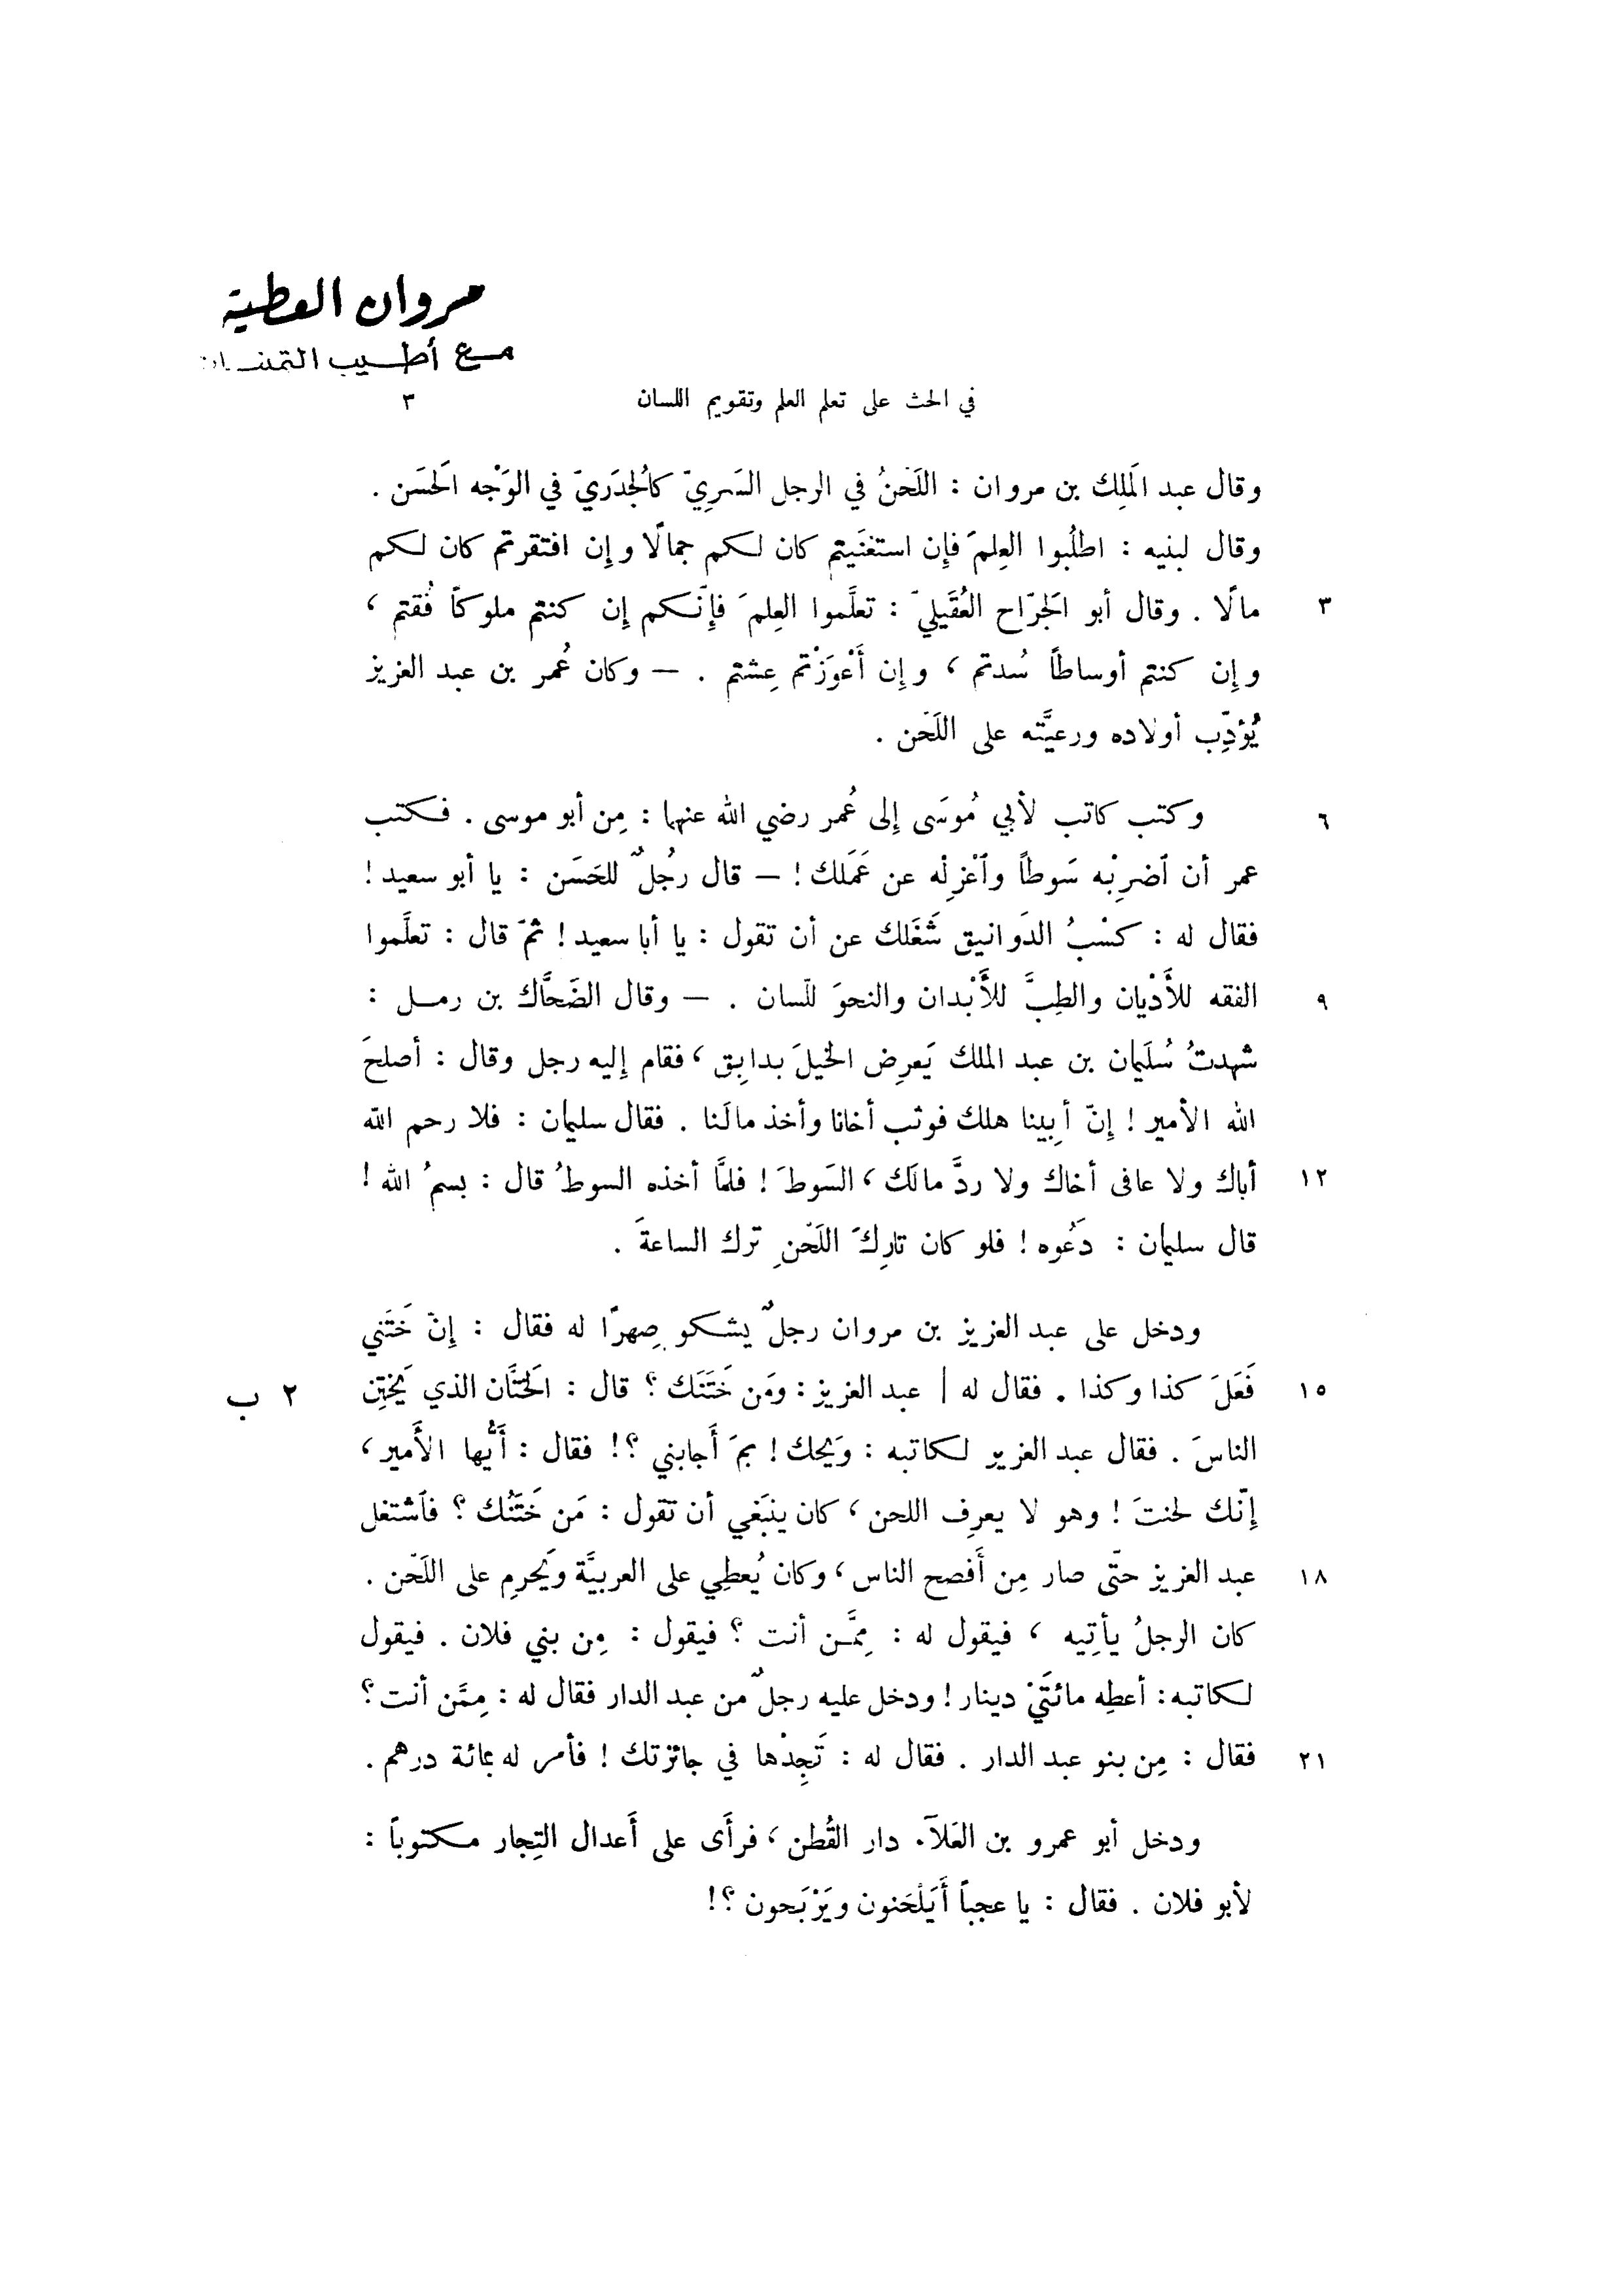 مروان العطية
مع أطيب
في الحث على تعلم العلم وتقويم اللسان ٣
وقال عبد الَملِك بن مروان : اللَحْنُ في الرجل السَرِيّ كالُجدَريّ في الوَجْه الَحسَن .
وقال لبنيه : اطلُبوا العِلمَ فإِن استغنَيتم كان لكم جمالًا وإِن افتقرتم كان لكم
٣ مالًا . وقال أبو الَجرّاح العُقَيليّ : تعلَّموا العِلمَ فإِنّكم إِن كنتم ملوكاً فُقتم ،
وإِن كنتم أوساطاً سُدتم ، وإِن أَعْوَزْتم عِشتم . — وكان عُمر بن عبد العزيز
يُؤدِّب أولاده ورعيَّته على اللَحْن .
٦ وكتب كاتب لأبي مُوسَى إِلى عُمر رضي الله عنهما : مِن أبو موسى . فكتب
عمر أن ٱضرِبْه سَوطاً وٱعْزِلْه عن عَمَلك ! — قال رجُلٌ للحَسَن : يا أبو سعيد !
فقال له : كسْبُ الدَوانيق شَغَلك عن أن تقول : يا أبا سعيد ! ثمّ قال : تعلَّموا
٩ الفقه للأَدْيان والطِبَّ للأَبْدان والنحوَ للّسان . — وقال الضَحَّاك بن رمل :
شهدتُ سُلَيمان بن عبد الملك يَعرِض الخيلَ بدابِق ، فقام إِليه رجل وقال : أصلحَ
الله الأمير ! إِنّ أبينا هلك فوثب أخانا وأخذ مالَنا . فقال سليمان : فلا رحم الله
١٢ أباك ولا عافى أخاك ولا ردَّ مالَك ، السَوطَ ! فلمَّا أخذه السوطُ قال : بسمُ الله !
قال سليمان : دَعُوه ! فلو كان تارِكَ اللَحْنِ ترك الساعةَ .
ودخل على عبد العزيز بن مروان رجلٌ يشكو صِهرًا له فقال : إِنّ خَتَني
١٥ فَعَلَ كذا وكذا . فقال له | عبد العزيز : ومَن خَتَنَك ؟ قال : الَختَّان الذي يَختِن ٢ ب
الناسَ . فقال عبد العزيز لكاتبه : وَيحك ! بمَ أَجابني ؟! فقال : أَيُّها الأَمير ،
إِنّك لحنتَ ! وهو لا يعرِف اللحن ، كان ينبَغي أن تقول : مَن خَتَنُك ؟ فٱشتغل
١٨ عبد العزيز حتّى صار مِن أَفصح الناس ، وكان يُعطِي على العربيَّة ويَحرِم على اللَحْن .
كان الرجلُ يأتِيه ، فيقول له : مِمَّن أنت ؟ فيقول : مِن بني فلان . فيقول
لكاتبه : أعطِه مائتَيْ دينار ! ودخل عليه رجلٌ من عبد الدار فقال له : مِمَّن أنت ؟
٢١ فقال : مِن بنو عبد الدار . فقال له : تَجِدْها في جائزتك ! فأمر له بمائة درهم .
ودخل أبو عمرو بن العَلآء دار القُطن ، فرأَى على أَعدال التِجار مكتوباً :
لأبو فلان . فقال : يا عجباً أَيَلْحَنون ويَرْبَحون ؟!